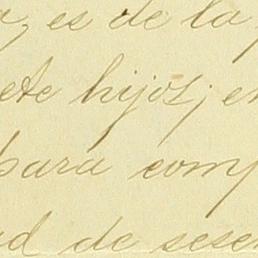 a, es de la
ete hijos; e
para comp
ad de sese